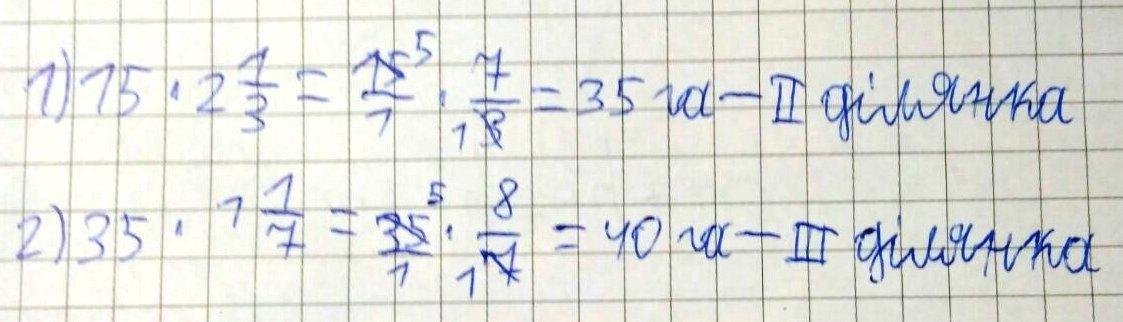 1) 15 · 2 1/3 = 15⁵/1 · 7/₁3 = 35 га – II ділянка
2) 35 · 1 1/7 = 35⁵/1 · 8/₁7 = 40 га – III ділянка